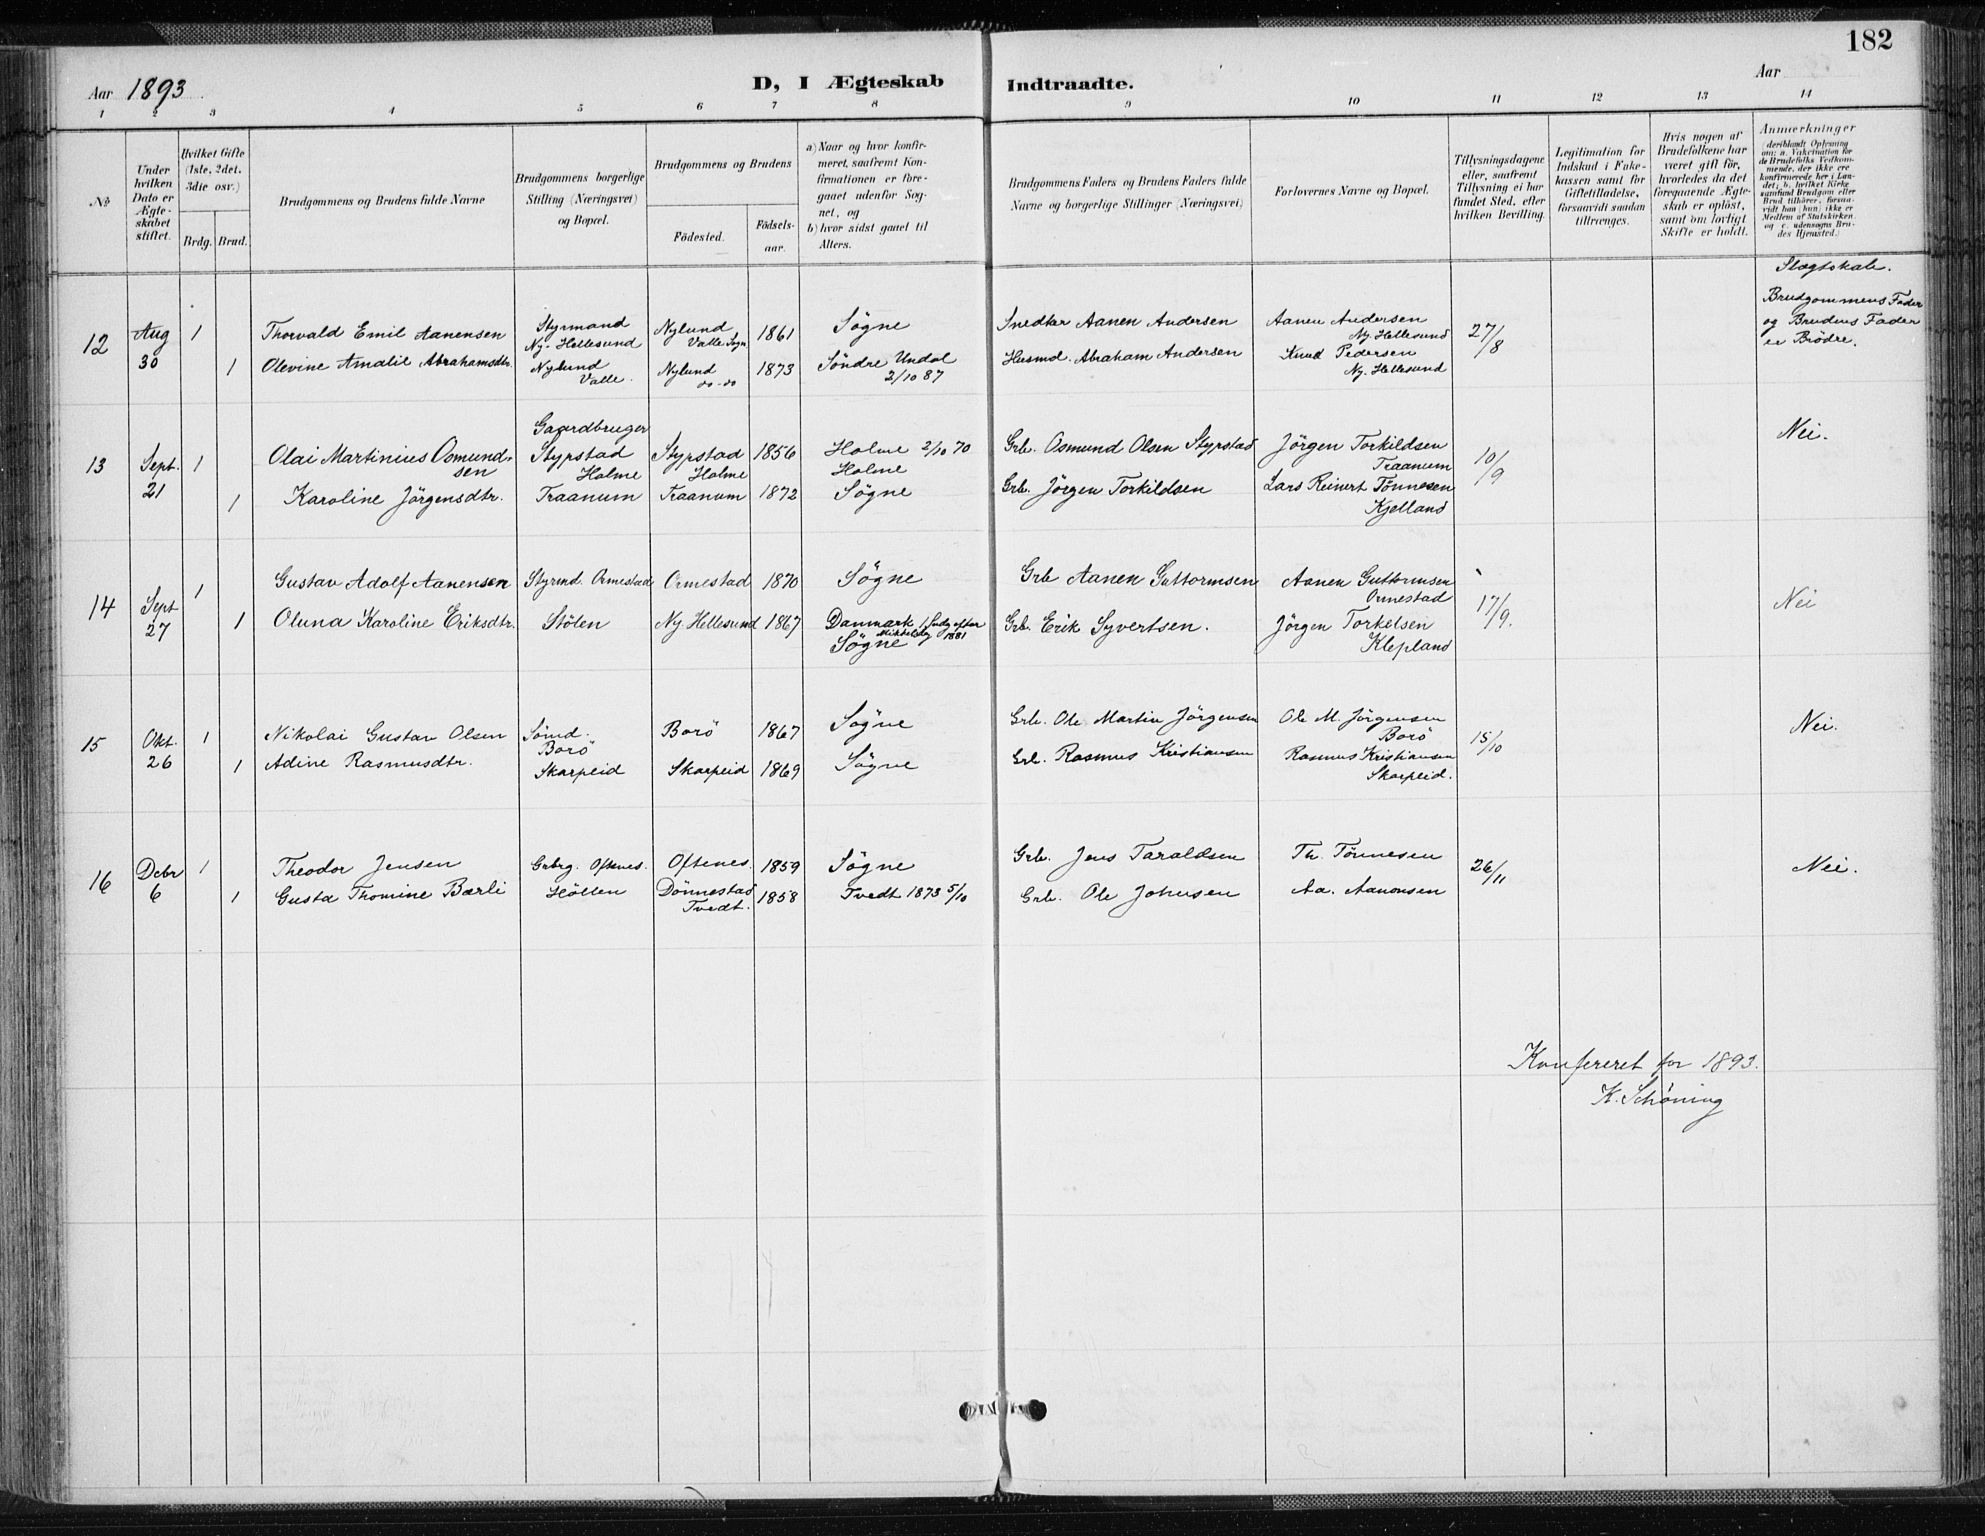 182
Aar 1893
D, I Ægteskab Indtraadte.
Aar
1 2 3 4 5 6 7 8 9 10 11 12 13 14
№
Under hvilken Dato er Ægte-skabet stiftet.
Hvilket Gifte (1ste, 2det, 3die osv.)
Brdg. Brud.
Brudgommens og Brudens fulde Navne
Brudgommens borgerlige Stilling (Næringsvei) og Bopæl.
Brudgommens og Brudens
Fødested.
Fødsels-aar.
a) Naar og hvor konfir-meret, saafremt Kon-firmationen er fore-gaaet udenfor Sog-net, og
b) hvor sidst gaaet til Alters.
Brudgommens Faders og Brudens Faders fulde Navne og borgerlige Stillinger (Næringsvei)
Forlovernes Navne og Bopæl.
Tillysningsdagene eller, saafremt Tillysning ei har fundet Sted, efter hvilken Bevilling.
Legitimation for Indskud i Enke-kassen samt for Giftetilladelse, forsaavidt saadan tiltrænges.
Hvis nogen af Brudefolkene har været gift før, hvorledes da det foregaaende Ægte-skab er opløst, samt om lovligt Skifte er holdt.
Anmærkninger
(deriblandt Oplysning om: a. Vakcination for de Brudefolks Vedkom-mende, der ikke ere konfirmerede her i Lan-det; b. hvilket Kirke-samfund Brudgom eller Brud tilhører, forsaa-vidt han (hun) ikke er Medlem af Statskirken, og c. udensogns Bru-des Hjemsted.)
Slægtskab.
12 Aug 30 1 Thorvald Emil Aanensen Styrmand Ny-Hellesund Nylund Valle Sogn 1861 Søgne Snedker Aanen Andersen Aanen Andersen Ny. Hellesund 27/8 Brudgommens Fader og Brudens Fader er Brödre.
1 Olevine Amalie Abrahamsdtr. Nylund Valle. Nylund do-do 1873 Söndre Undal 2/10 87 Husmd. Abraham Andersen Knud Pedersen Ny. Hellesund
13 Sept. 21 1 Olai Martinius Osmund-sen Gaardbruger Stypstad Holme Stypstad Holme 1856 Holme 2/10 70 Holme Grb. Osmund Olsen Stypstad Jörgen Torkildsen Traanum 10/9 Nei.
1 Karoline Jörgensdtr. Traanum Traanum 1872 Søgne Grb. Jörgen Torkildsen Lars Reinert Tönnesen Kjelland
14 Sept 27 1 Gustav Adolf Aanensen Styrmd. Ormestad Ormestad 1870 Søgne Grb Aanen Guttormsen Aanen Guttormsen Ormestad 17/9. Nei
1 Oluna Karoline Eriksdtr. Stölen Ny Hellesund 1867 Danmark 1 Sndg efter Mikkelsdg 1881 Søgne Grb. Erik Syvertsen. Jörgen Torkelsen Klepland
15 Okt. 26 1 Nikolai Gustav Olsen Sömd. Borö Borö 1867 Søgne Grb. Ole Martin Jörgensen Ole M. Jörgensen Borö 15/10 Nei.
1 Adine Rasmusdtr. Skarpeid Skarpeid 1869 Søgne Grb. Rasmus Kristiansen Rasmus Kristiansen Skarpeid.
16 Debr 6 1 Theodor Jensen Grbrg. Oftenes. Oftenes 1859 Søgne Grb. Jens Taraldsen Th. Tönnesen 26/11 Nei.
1 Gusta Thomine Bærli Höllen Dönnestad Tvedt. 1858 Tvedt 1873 5/10 Grb. Ole Johnsen Aa. Aanonsen
Konfereret for 1893.
K. Schöning